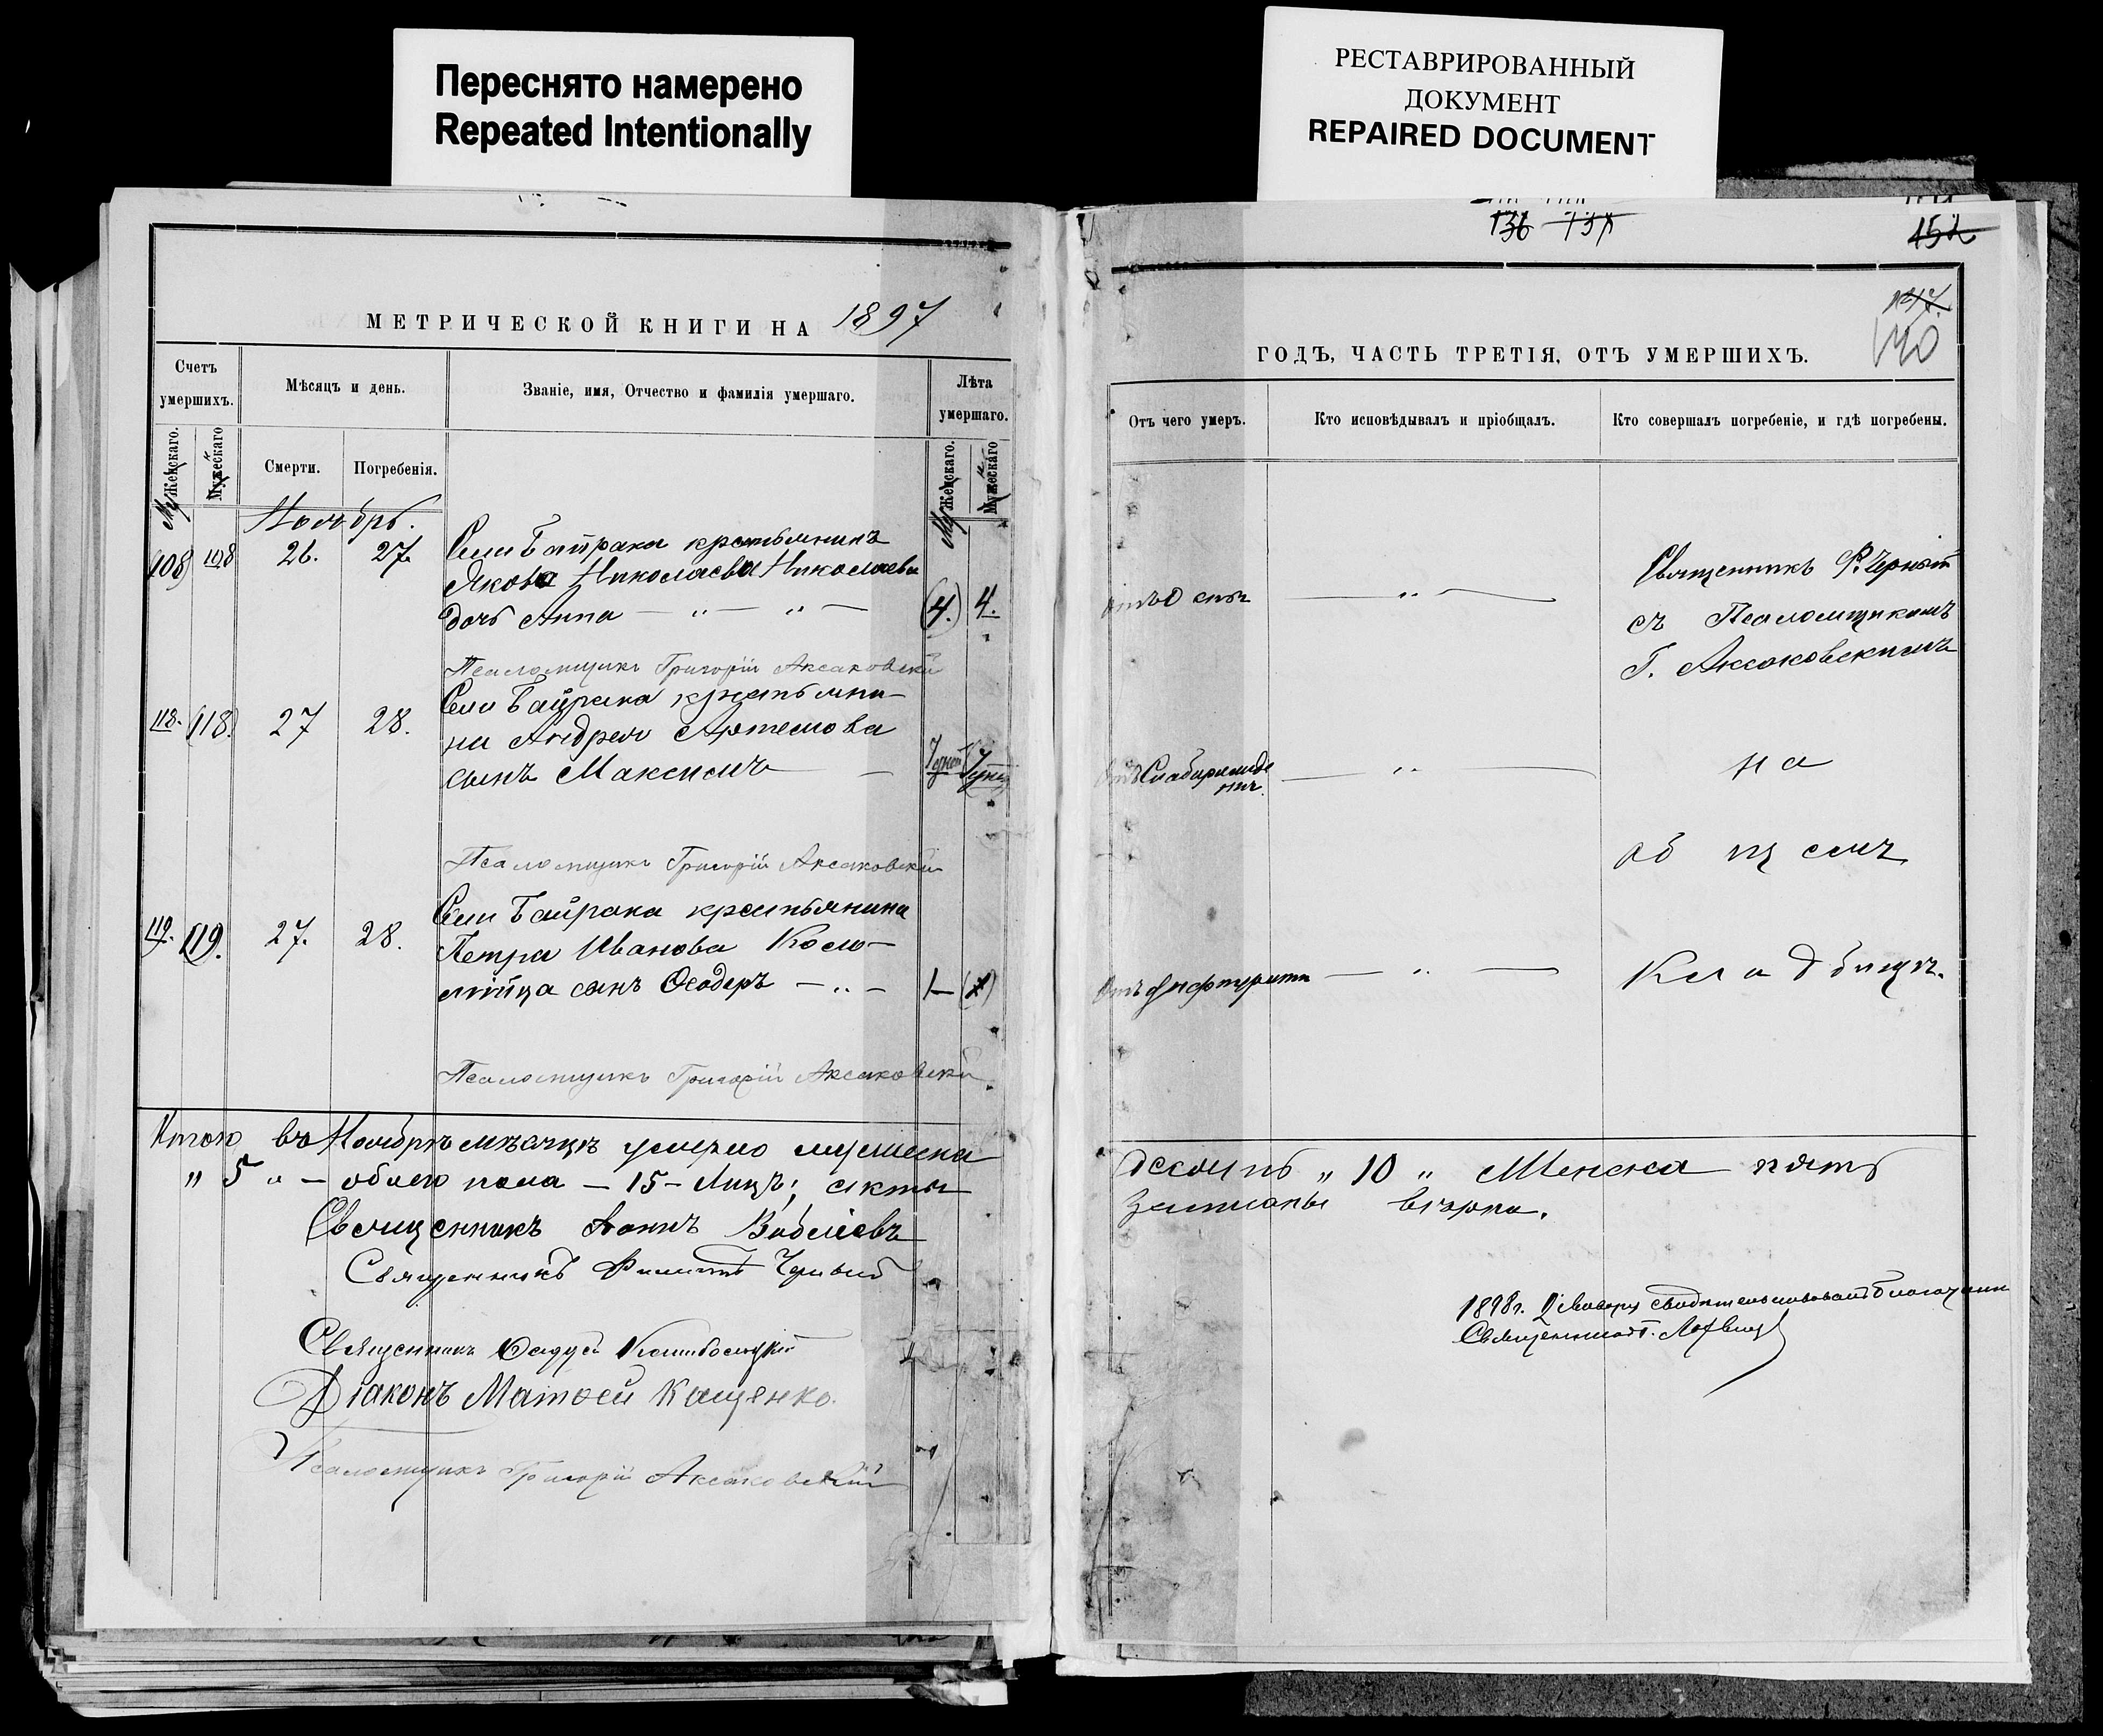 Переснято намерено
Repeated Intentionally
РЕСТАВРИРОВАННЫЙ
ДОКУМЕНТ
REPAIRED DOCUMENT
136 137
152
МЕТРИЧЕСКОЙ КНИГИ НА 1897
Счетъ умершихъ.
Мѣсяцъ и день.
Званіе, имя, Отчество и фамилія умершаго.
Лѣта умершаго.
Женскаго.
Мужескаго
Смерти.
Погребенія.
Женскаго.
Мужескаго
Ноябрь.
(108) 108 26. 27. Села Байрака крестьянина
Якова Николаева Николаева
дочь Анна — „ — „ — (4.) 4.
Псаломщикъ Григорій Аксаковскій
Села Байрака крестьяни-
118. (118.) 27 28. на Андрея Артемова
сынъ Максимъ — 7 дней 7 дней
Псаломщикъ Григорій Аксаковскій
Села Байрака крестьянина
119. (119.) 27. 28. Петра Иванова Коло-
мійца сынъ Ѳеодоръ — „ — 1 — (1)
Псаломщикъ Григорій Аксаковскій.
Итого въ Ноябрѣ мѣсяцѣ умерло мужеска
„ 5 „ — обоего пола — 15 — лицъ; акты
Священникъ Іоаннъ
Священникъ Филиппъ Черный
Священникъ
Діаконъ Матѳей Кащенко.
Псаломщикъ Григорій Аксаковскій
140
ГОДЪ, ЧАСТЬ ТРЕТІЯ, ОТЪ УМЕРШИХЪ.
Отъ чего умеръ.
Кто исповѣдывалъ и пріобщалъ.
Кто совершалъ погребеніе, и гдѣ погребены.
Священникъ Ф. Черный
Отъ Оспы — „ —
съ Псаломщикомъ
Г. Аксаковскимъ
Отъ Слаборожде
нія. — „ — на
общемъ
Отъ дифтерита — „ — кладбищѣ.
десять „ 10 „ Женска пять
записаны вѣрно.
1898 г. Января свидетельствовалъ благочин
Священникъ